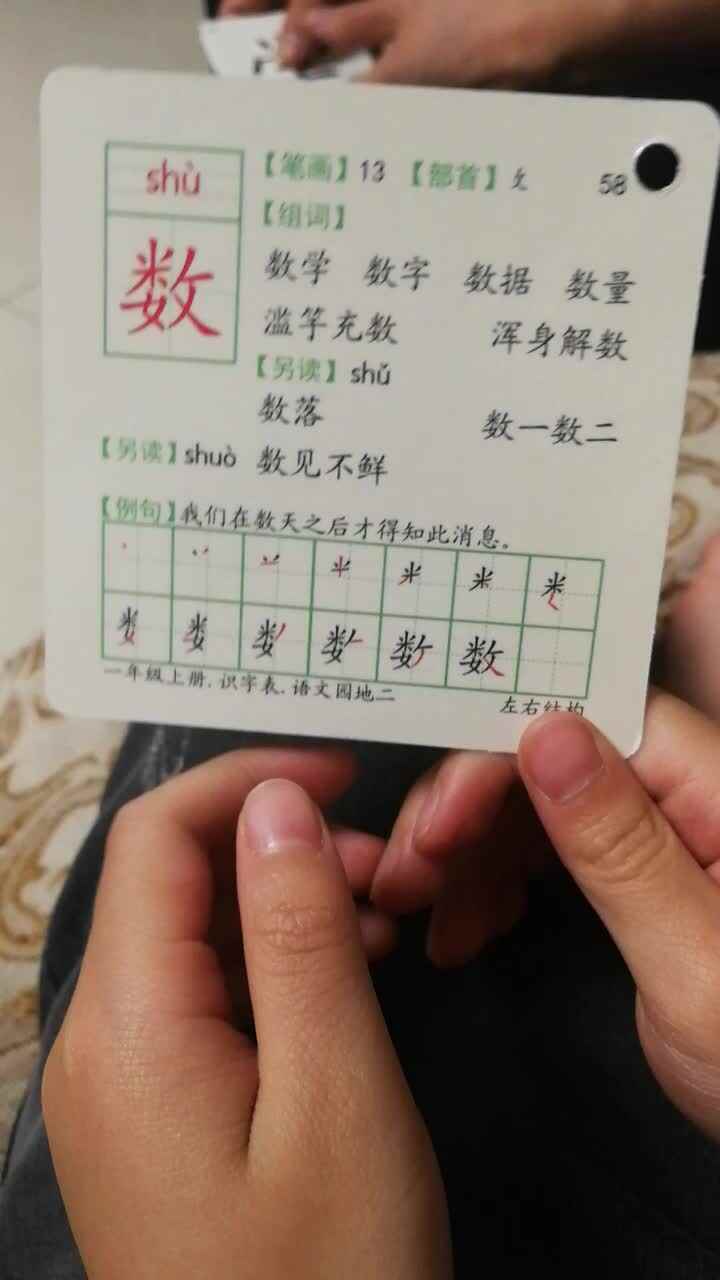 shù
数
【笔画】13 【部首】攵 58
【组词】
数学 数字 数据 数量
滥竽充数 浑身解数
【另读】shǔ
数落 数一数二
【另读】shuò 数见不鲜
【例句】我们在数天之后才得知此消息。
一年级上册.识字表.语文园地二
左右结构